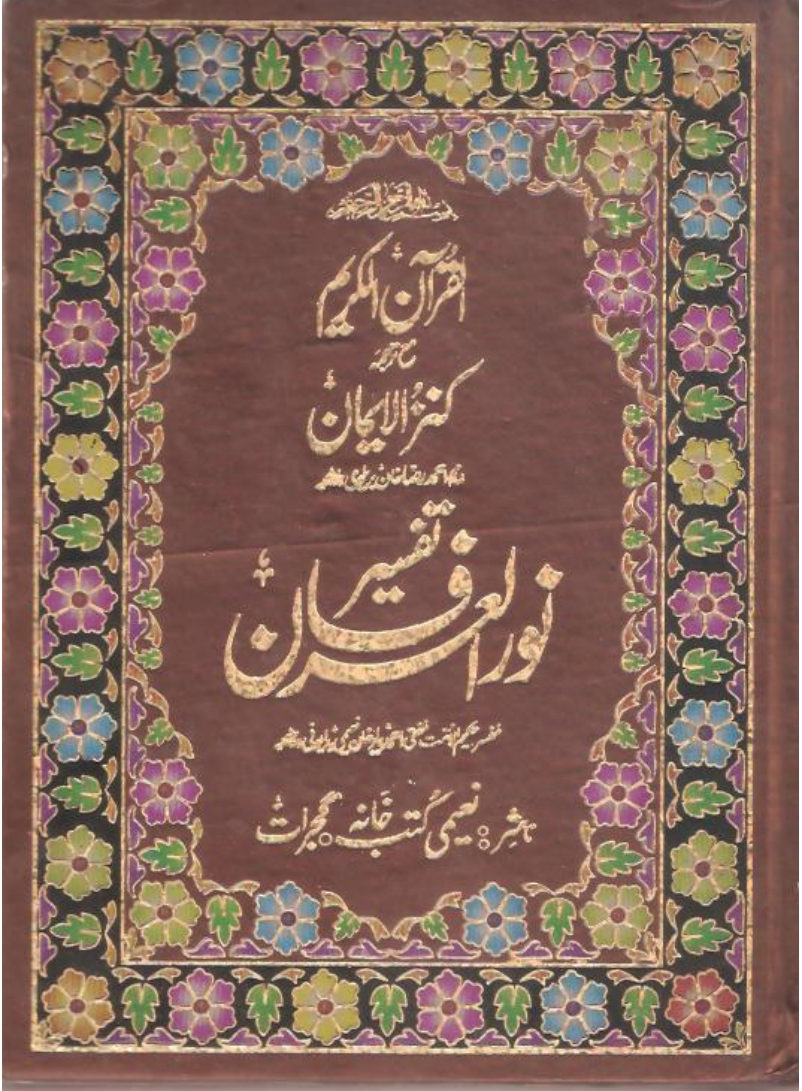 بسم اللہ الرحمن الرحیم
القرآن الکریم
مع ترجمہ
کنز الایمان
امام احمد رضا خان بریلوی
تفسیر
نور العرفان
مفسر حکیم الامت مفتی احمد یار خان نعیمی بدایونی
ناشر: نعیمی کتب خانہ گجرات